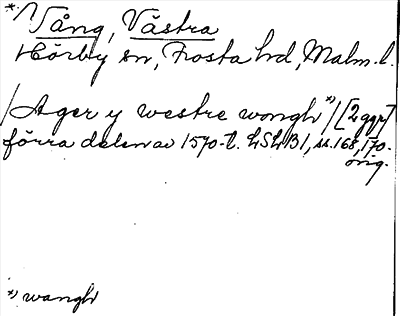 * Vång, Västra
Hörby sn, Frosta hd, Malm. l.
/Ager y westre wongh *)/ [2 ggr]
förra delen av 1570-t. LSLB1, ss. 168, 170.
orig.
*) wangh